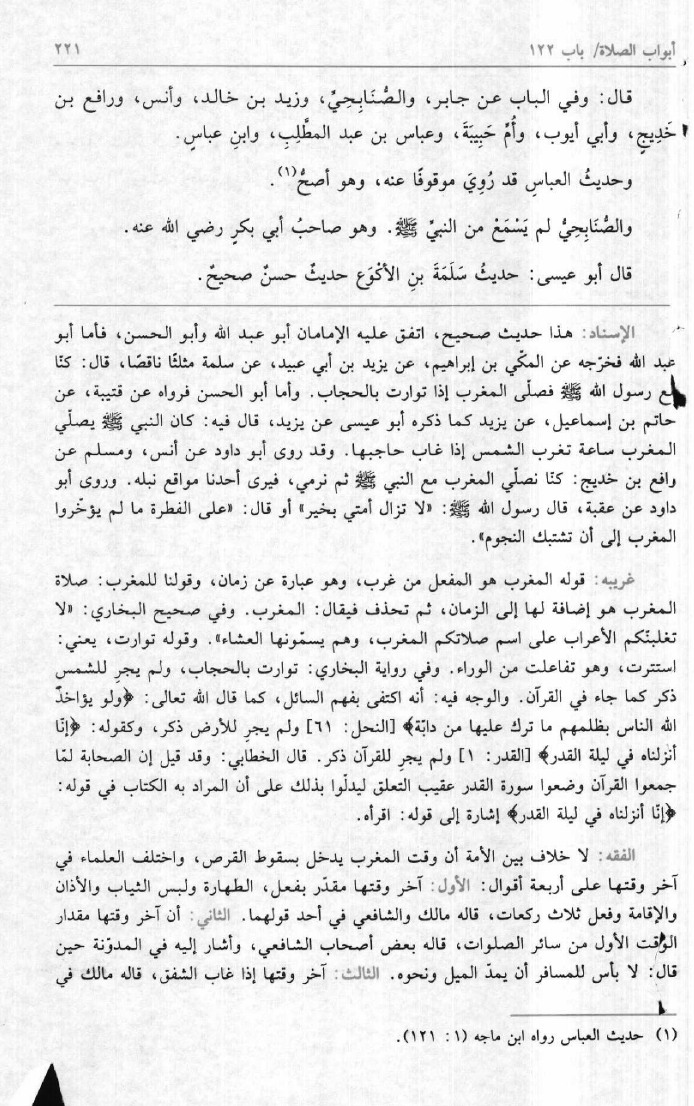 أبواب الصلاة/ باب ١٢٢
٢٢١
قال: وفي الباب عن جابر، والصُّنَابِحِيِّ، وزيد بن خالد، وأنس، ورافع بن
خَدِيجٍ، وأبي أيوب، وأُمِّ حَبِيبَةَ، وعباس بن عبد المطَّلِبِ، وابنِ عباسٍ.
وحديثُ العباسِ قد رُوِيَ موقوفًا عنه، وهو أصحُّ(١).
والصُّنَابِحِيُّ لم يَسْمَعْ من النبيِّ ﷺ. وهو صاحبُ أبي بكرٍ رضي الله عنه.
قال أبو عيسى: حديثُ سَلَمَةَ بنِ الأكْوَع حديثٌ حسنٌ صحيحٌ.
الإسناد: هذا حديث صحيح، اتفق عليه الإمامان أبو عبد الله وأبو الحسن، فأما أبو
عبد الله فخرّجه عن المكّي بن إبراهيم، عن يزيد بن أبي عبيد، عن سلمة مثلثًا ناقصًا، قال: كنّا
مع رسول الله ﷺ فصلّى المغرب إذا توارت بالحجاب. وأما أبو الحسن فرواه عن قتيبة، عن
حاتم بن إسماعيل، عن يزيد كما ذكره أبو عيسى عن يزيد، قال فيه: كان النبي ﷺ يصلّي
المغرب ساعة تغرب الشمس إذا غاب حاجبها. وقد روى أبو داود عن أنس، ومسلم عن
رافع بن خديج: كنّا نصلّي المغرب مع النبي ﷺ ثم نرمي، فيرى أحدنا مواقع نبله. وروى أبو
داود عن عقبة، قال رسول الله ﷺ: «لا تزال أمتي بخير» أو قال: «على الفطرة ما لم يؤخّروا
المغرب إلى أن تشتبك النجوم».
غريبه: قوله المغرب هو المفعل من غرب، وهو عبارة عن زمان، وقولنا للمغرب: صلاة
المغرب هو إضافة لها إلى الزمان، ثم تحذف فيقال: المغرب. وفي صحيح البخاري: «لا
تغلبنّكم الأعراب على اسم صلاتكم المغرب، وهم يسمّونها العشاء». وقوله توارت، يعني:
استترت، وهو تفاعلت من الوراء. وفي رواية البخاري: توارت بالحجاب، ولم يجرِ للشمس
ذكر كما جاء في القرآن. والوجه فيه: أنه اكتفى بفهم السائل، كما قال الله تعالى: ﴿ولو يؤاخذ
الله الناس بظلمهم ما ترك عليها من دابّة﴾ [النحل: ٦١] ولم يجرِ للأرض ذكر، وكقوله: ﴿إنّا
أنزلناه في ليلة القدر﴾ [القدر: ١] ولم يجرِ للقرآن ذكر. قال الخطابي: وقد قيل إن الصحابة لمّا
جمعوا القرآن وضعوا سورة القدر عقيب التعلق ليدلّوا بذلك على أن المراد به الكتاب في قوله:
﴿إنّا أنزلناه في ليلة القدر﴾ إشارة إلى قوله: اقرأه.
الفقه: لا خلاف بين الأمة أن وقت المغرب يدخل بسقوط القرص، واختلف العلماء في
آخر وقتها على أربعة أقوال: الأول: آخر وقتها مقدّر بفعل، الطهارة ولبس الثياب والأذان
والإقامة وفعل ثلاث ركعات، قاله مالك والشافعي في أحد قولهما. الثاني: أن آخر وقتها مقدار
الوقت الأول من سائر الصلوات، قاله بعض أصحاب الشافعي، وأشار إليه في المدوّنة حين
قال: لا بأس للمسافر أن يمدّ الميل ونحوه. الثالث: آخر وقتها إذا غاب الشفق، قاله مالك في
(١) حديث العباس رواه ابن ماجه (١: ١٢١).